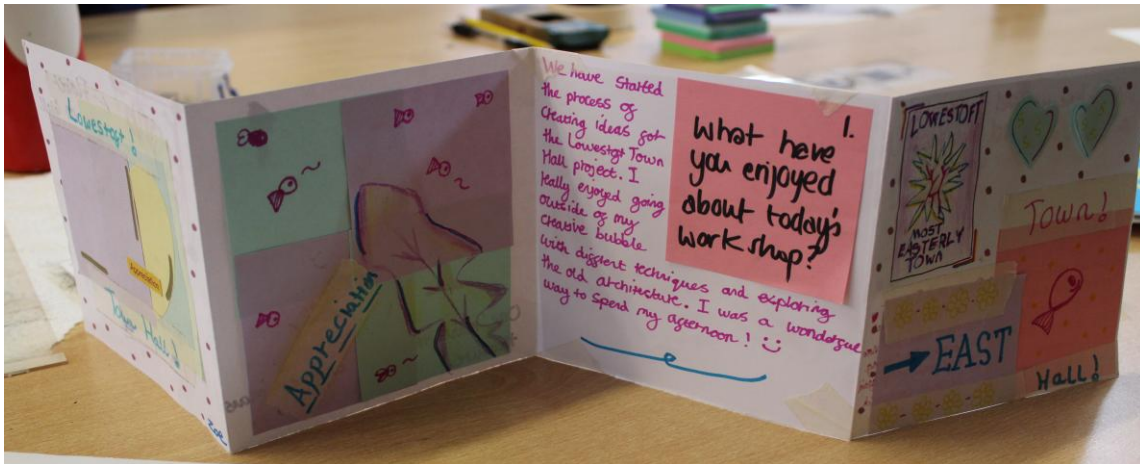 Lowestoft!
Town Hall!
Appreciation
We have started
the process of
creating ideas for
the Lowestoft Town
Hall project. I
really enjoyed going
outside of my
creative bubble
with different techniques and exploring
the old architecture. I was a wonderful
way to spend my afternoon! :)
1.
What have
you enjoyed
about today's
workshop?
LOWESTOFT
MOST
EASTERLY
TOWN
→ EAST
Town!
Hall!